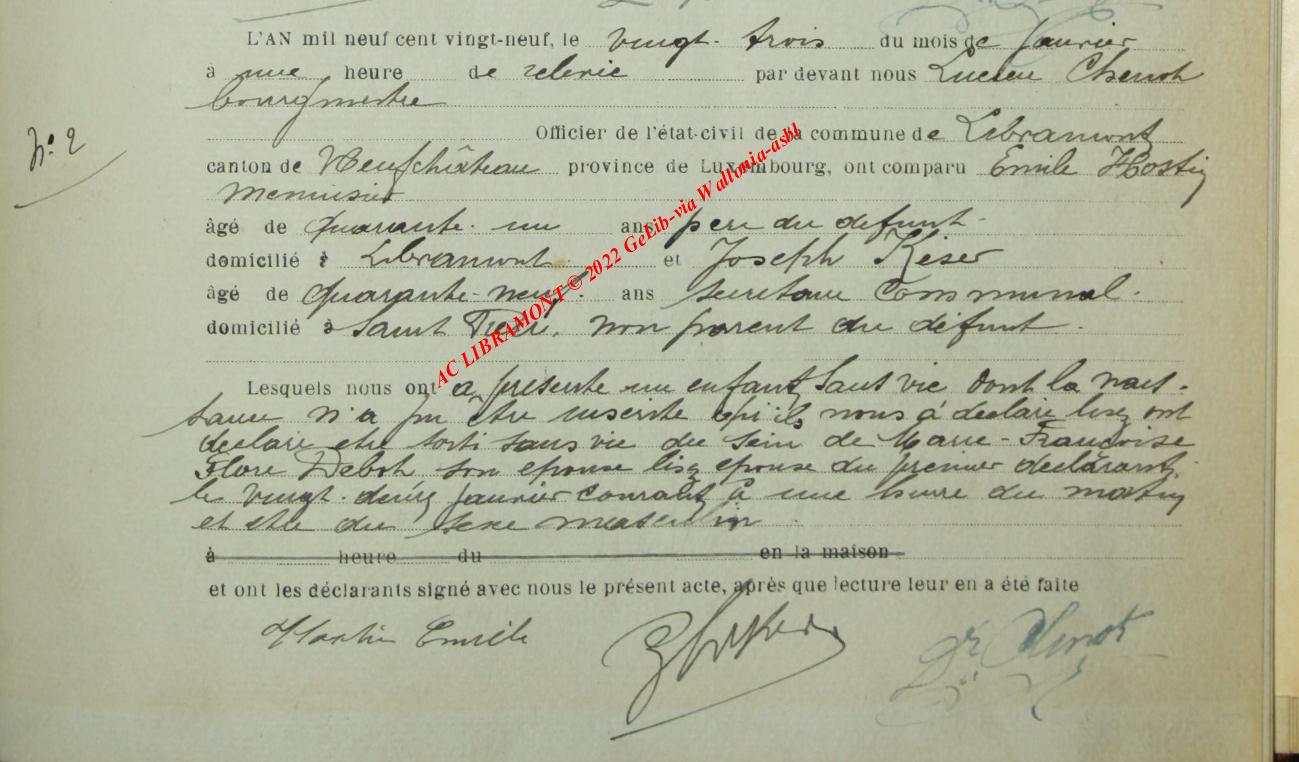 L'AN mil neuf cent vingt-neuf, le vingt-trois du mois de janvier
à une heure de relevée par devant nous Lucien Chenot
bourgmestre
Officier de l'état-civil de la commune de Libramont
N° 2
canton de Neufchâteau province de Luxembourg, ont comparu Emile Hostin
Menuisier
âgé de quarante-un ans père du défunt
domicilié à Libramont et Joseph Keser
âgé de quarante-neuf ans secrétaire communal.
domicilié à Saint Pierre, non parent du défunt.
Lesquels nous ont a présenté un enfant sans vie dont la nais-
sance n'a pu être inscrite qu'ils nous a déclaré lisez ont
déclaré être sorti sans vie du sein de Marie-Françoise
Flore son épouse lisez épouse du premier déclarant,
le vingt-deux janvier courant à une heure du matin
et être du sexe masculin
à heure du en la maison
et ont les déclarants signé avec nous le présent acte, après que lecture leur en a été faite
Hostin Emile
Dr Chenot
AC LIBRAMONT © 2022 GeLib-via Wallonia-asbl